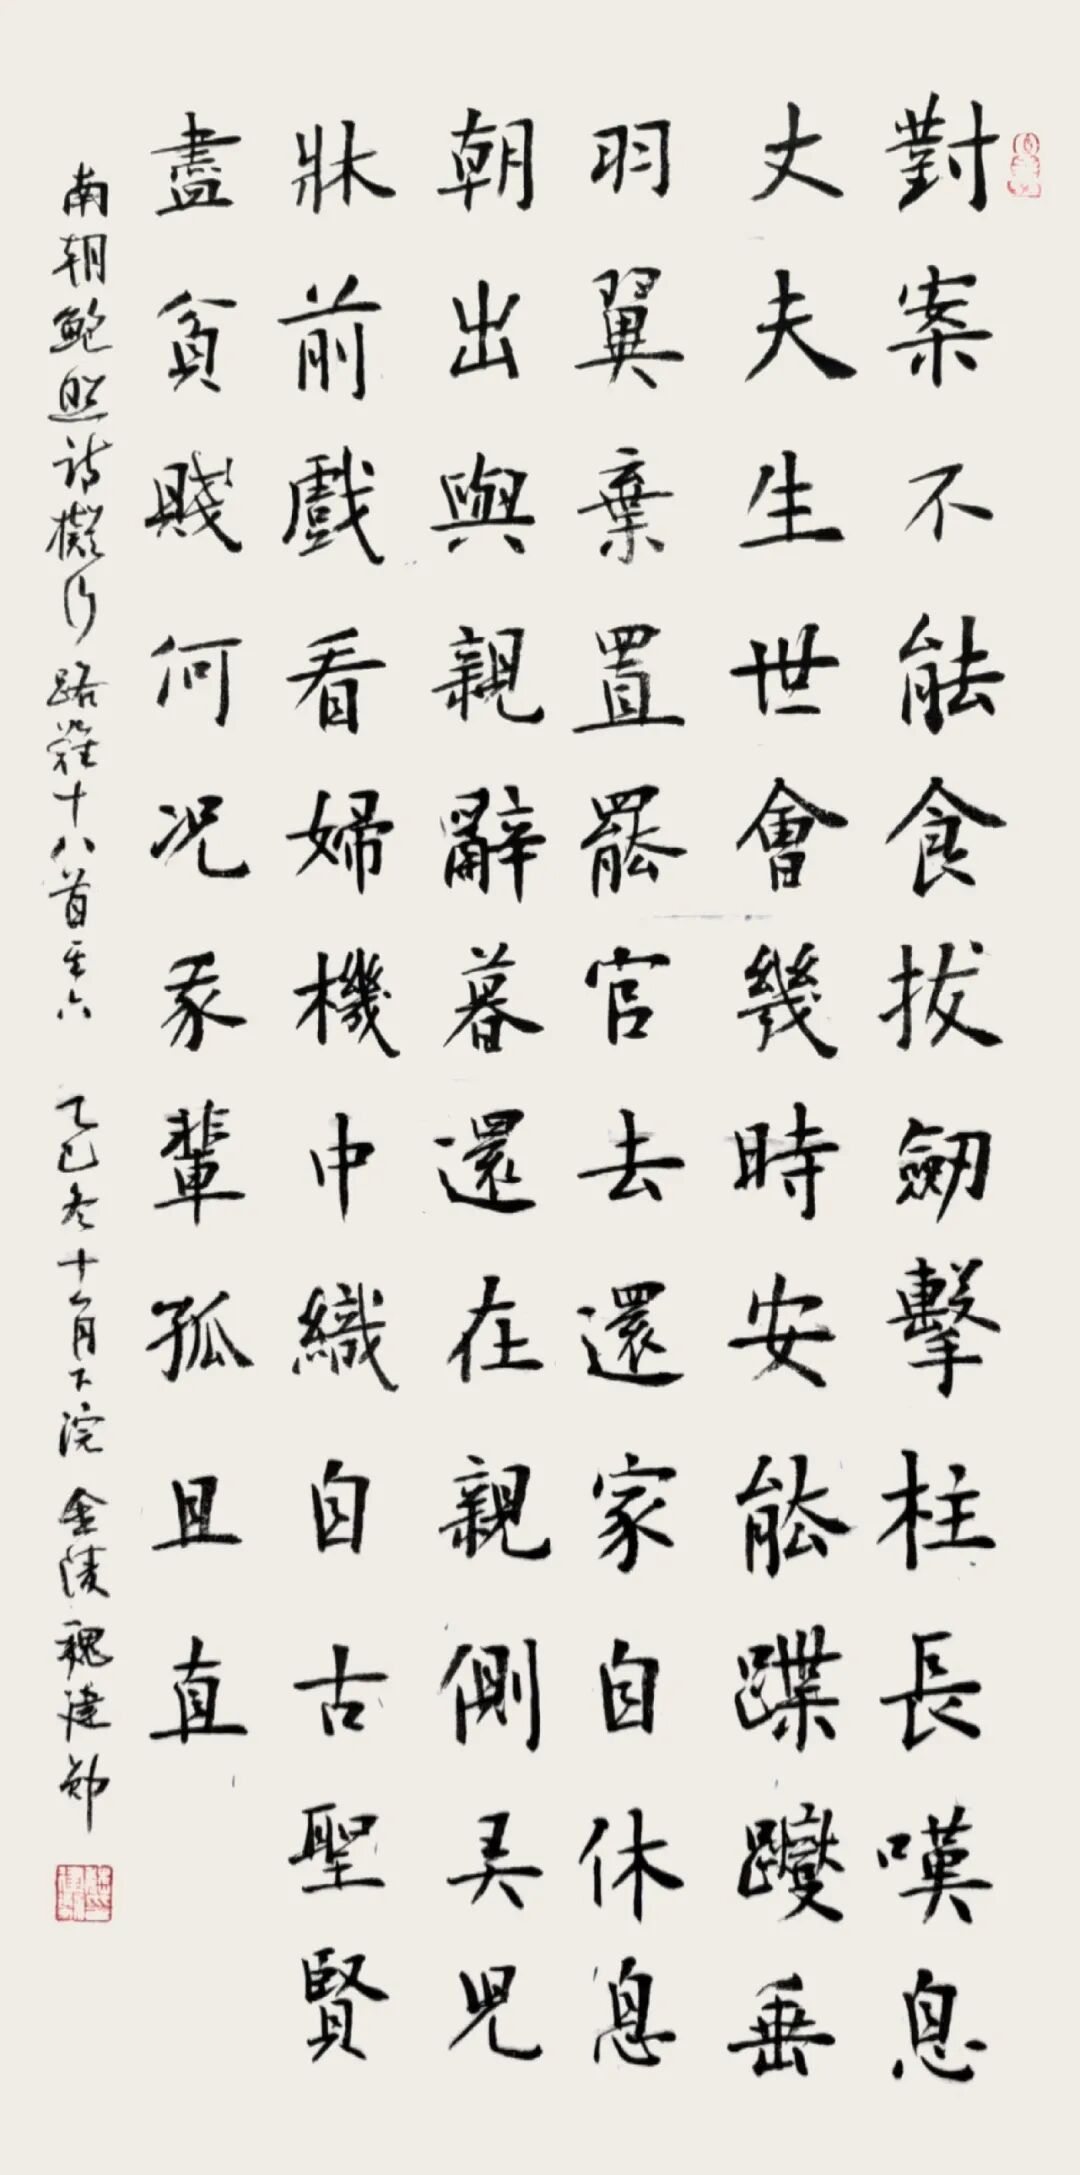 對案不能食拔劒擊柱長嘆息
丈夫生世會幾時安能蹀躞垂
羽翼棄置罷官去還家自休息
朝出與親辭暮還在親側弄兒
牀前戲看婦機中織自古聖賢
盡貧賤何況我輩孤且直
南朝鮑照詩擬行路難十八首其六 乙巳冬十一月下浣 金陵魏建